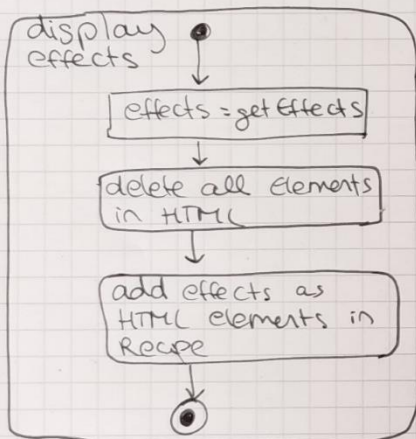 display
effects
effects = get Effects
delete all Elements
in HTML
add effects as
HTML elements in
Recipe